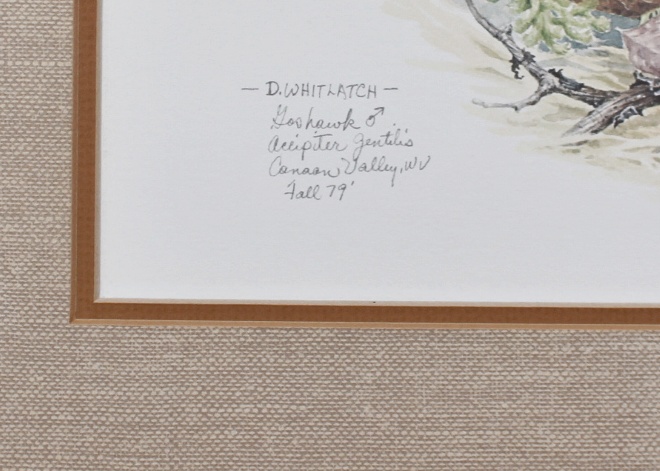 — D. WHITLATCH —
Goshawk ♂
Accipiter gentilis
Canaan Valley, WV
Fall 79'